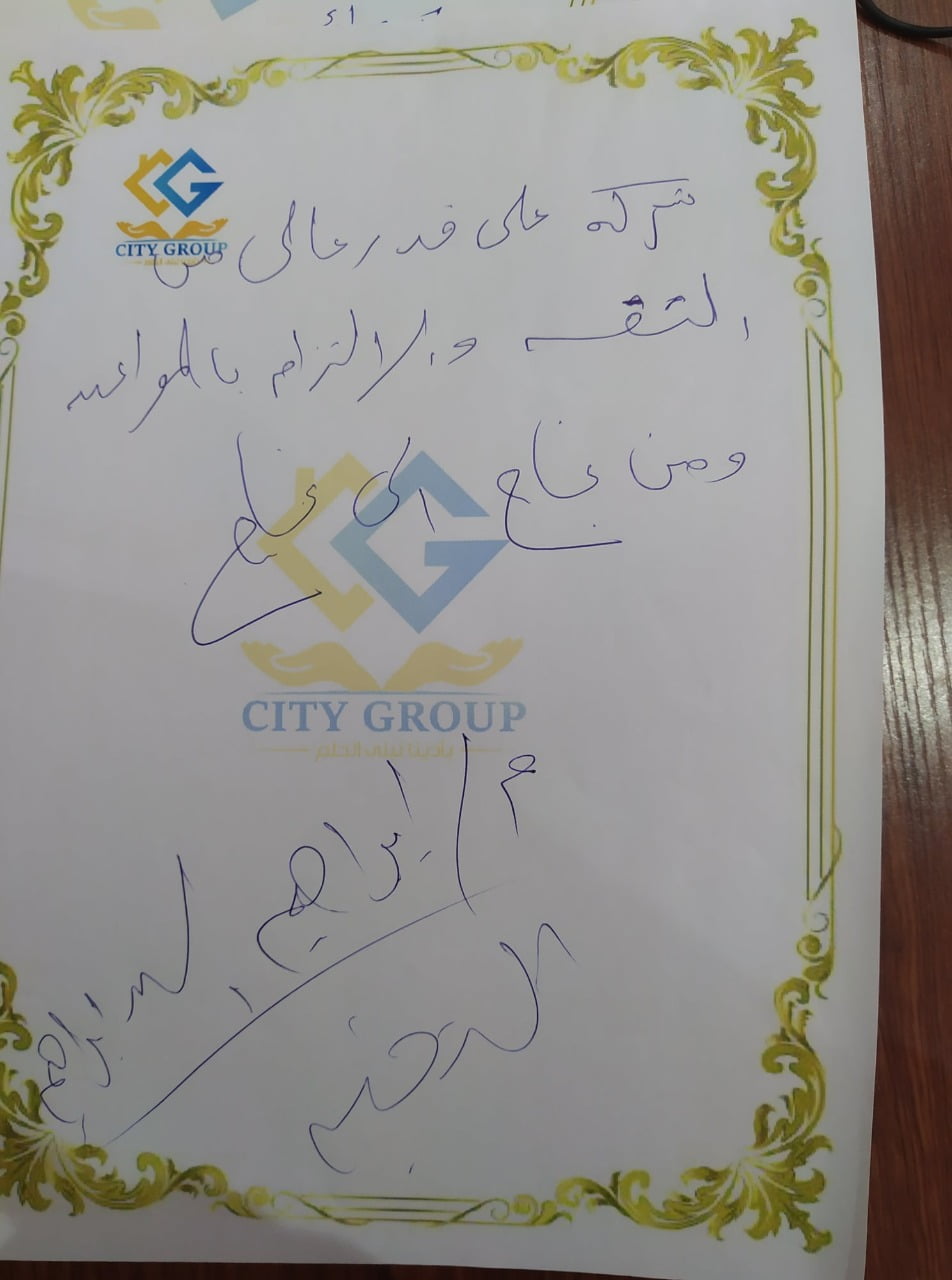 CITY GROUP
شركة على قدر عالى من
الثقة والالتزام بالمواعيد
ومن نجاح الى نجاح
CITY GROUP
بأدينا نبني الحلم
م / ابراهيم السيد ابراهيم